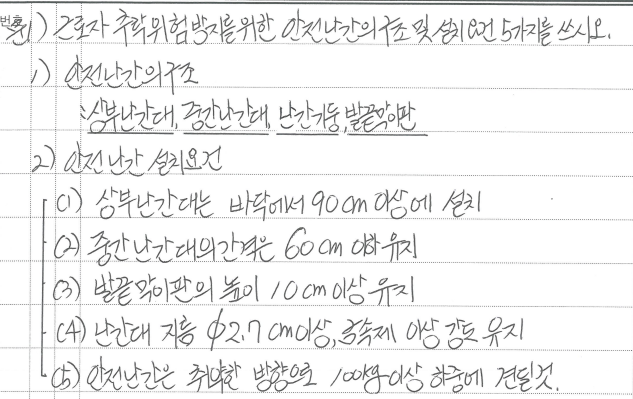 번호
문1) 근로자 추락위험방지를위한 안전난간의구조및설치요건 5가지를 쓰시오.
1) 안전난간의구조
:상부난간대, 중간난간대, 난간기둥, 발끝막이판
2) 안전난간 설치요건
(1) 상부난간대는 바닥에서 90cm 이상에 설치
(2) 중간난간대의간격은 60cm 이하유지
(3) 발끝막이판의 높이 10cm이상유지
(4) 난간대 지름 φ2.7cm이상, 금속제 이상 강도 유지
(5) 안전난간은 취약한 방향으로 100kg이상 하중에 견딜것.